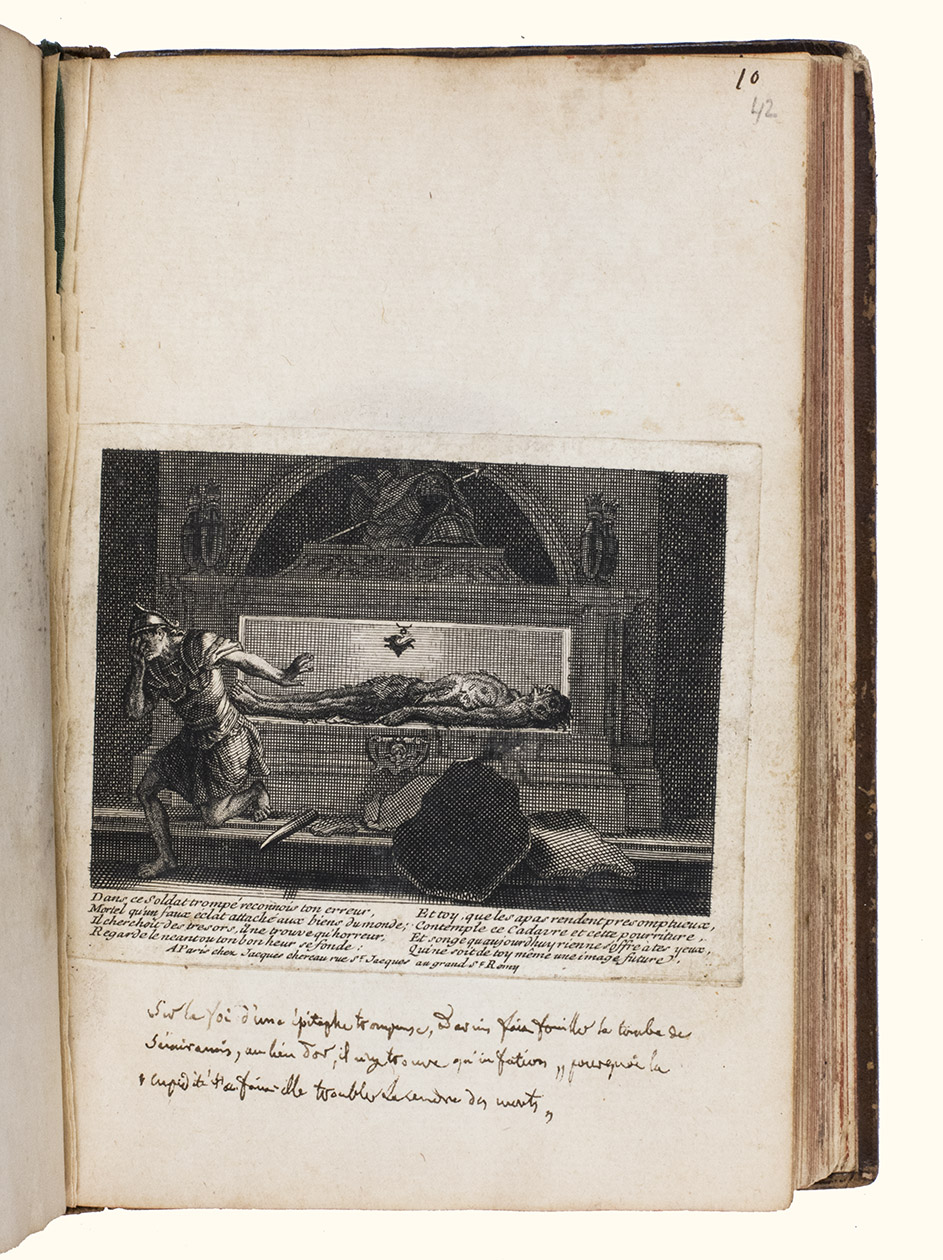 10
42
Dans ce Soldat trompé reconnois ton erreur,
Mortel qu'un faux eclat attache aux biens du monde;
Il cherchoit des tresors, il ne trouve qu'horreur,
Regarde le neant ou ton bonheur se fonde:
Et toy, que les apas rendent presomptueux,
Contemple ce Cadavre et cette pourriture,
Et songe qu'aujourdhuy rien ne s'offre à tes yeux,
Qui ne soit de toy même une image future.
A Paris chez Jacques chereau rue St. Jacques au grand St. Remy
Sur la foi d'une épitaphe trompeuse, Darius fait fouiller la tombe de
Sémiramis, au lieu d'or, il n'y trouve qu'infection „ pourquoi la
„ cupidité t'a fait-elle troubler la cendre des morts „